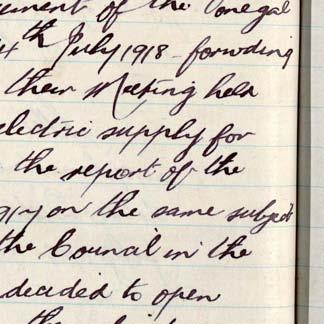 of the Donegal
4th July 1918 - forwding
their Meeting held
electric supply for
the report of the
on the same subject
the Council in the
decided to open
the